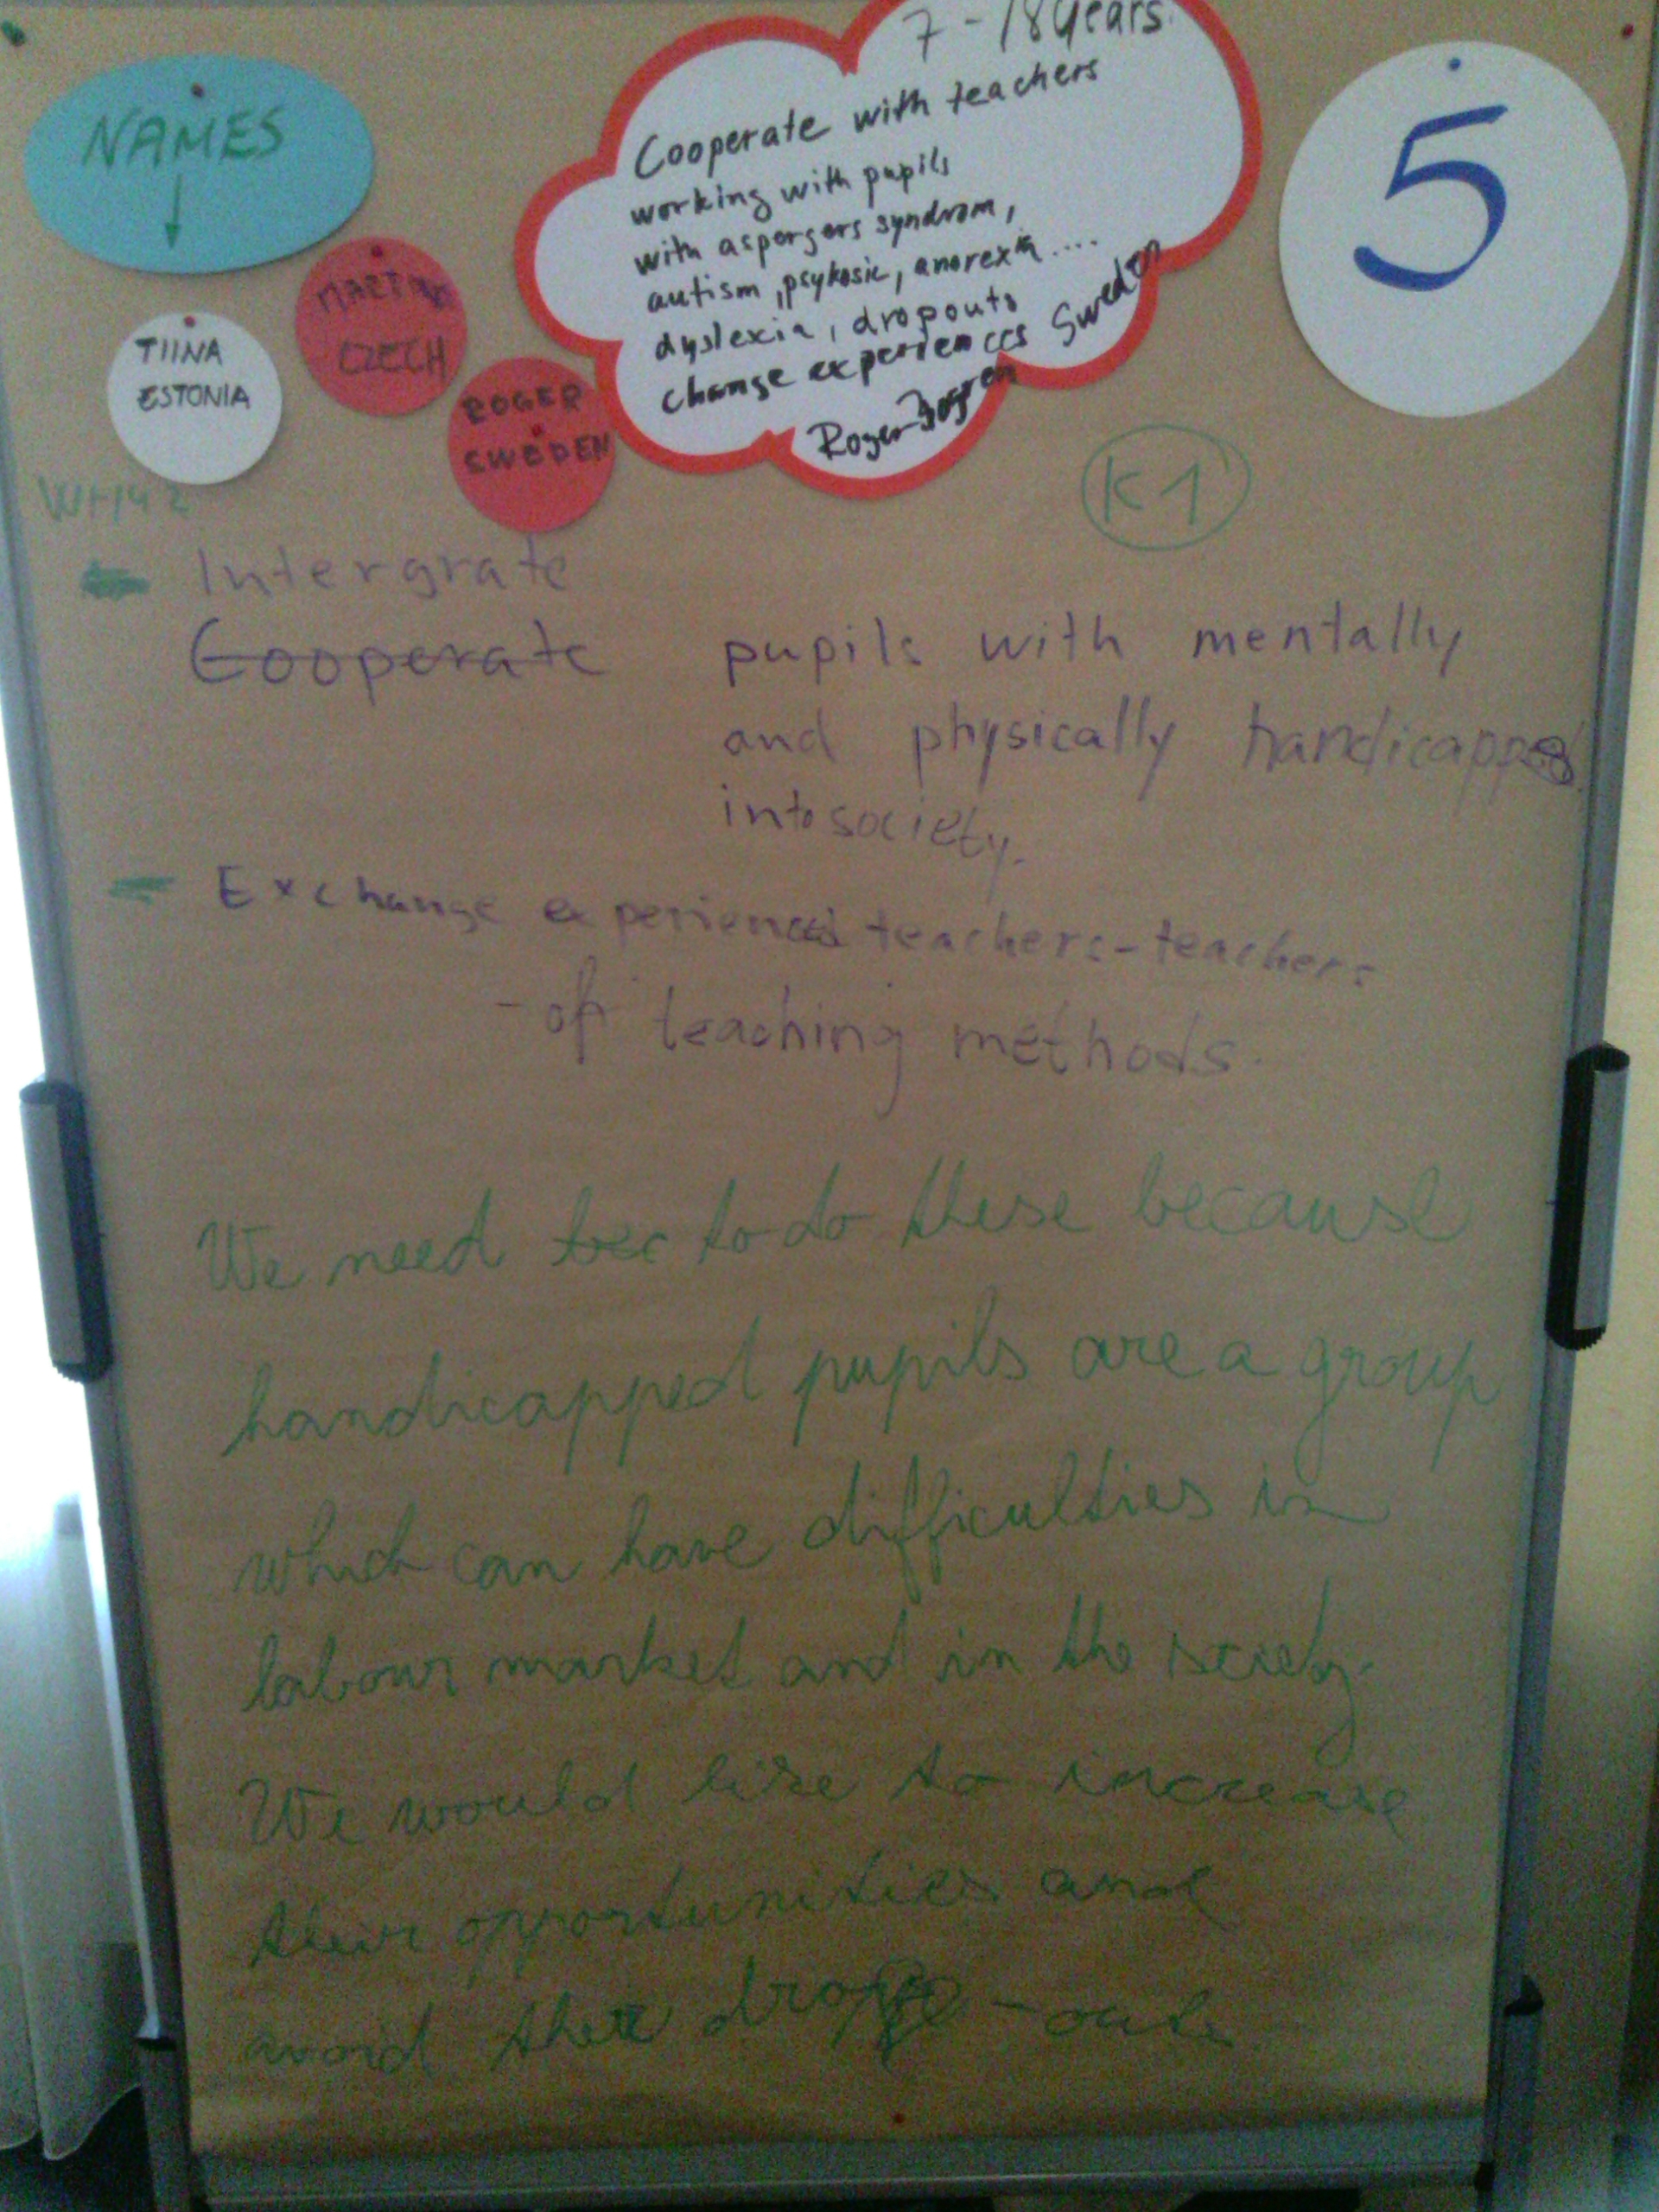 7-18 years
Cooperate with teachers
working with pupils
with aspergers syndrom,
autism, psykosic, anorexia....
dyslexia, dropouts
change experiences Sweden
Roger
5
NAMES
CZECH
TIINA
ESTONIA
ROGER
SWEDEN
K1
WHY?
Intergrate
Cooperate pupils with mentally
and physically handicapped
into society.
Exchange experiences teachers-teachers
- of teaching methods.
We need to do these because
handicapped pupils are a group
which can have difficulties in
labour market and in the society.
We would like to increase
their opportunities and
avoid their drop-outs